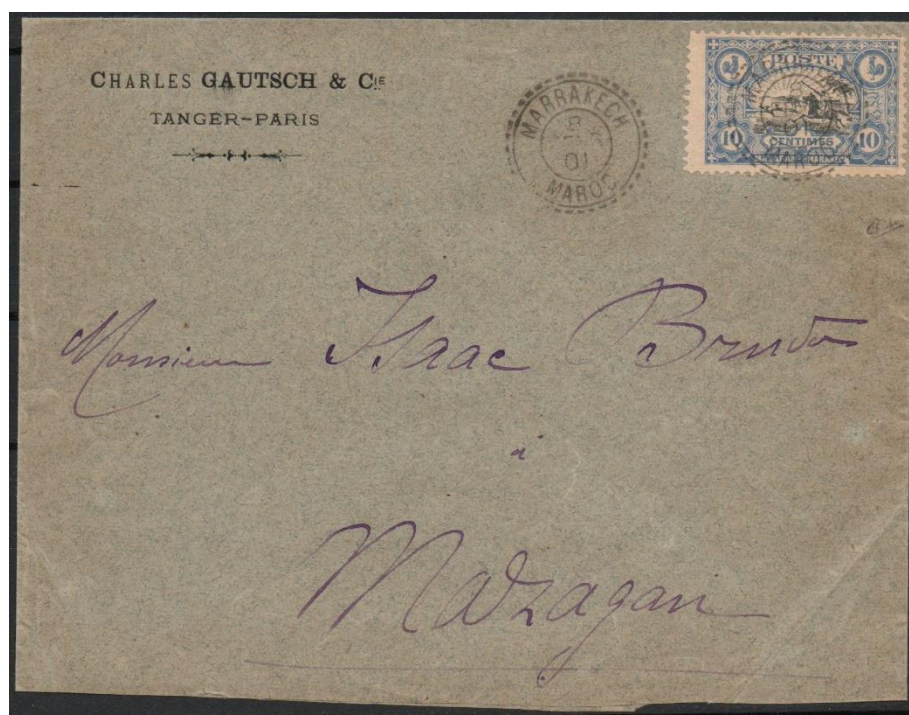 CHARLES GAUTSCH & CIE
TANGER-PARIS
MARRAKECH
8
01
MAROC
POSTE
10
CENTIMES
10
MARRAKECH
Monsieur Isaac Brudo
à
Mazagan